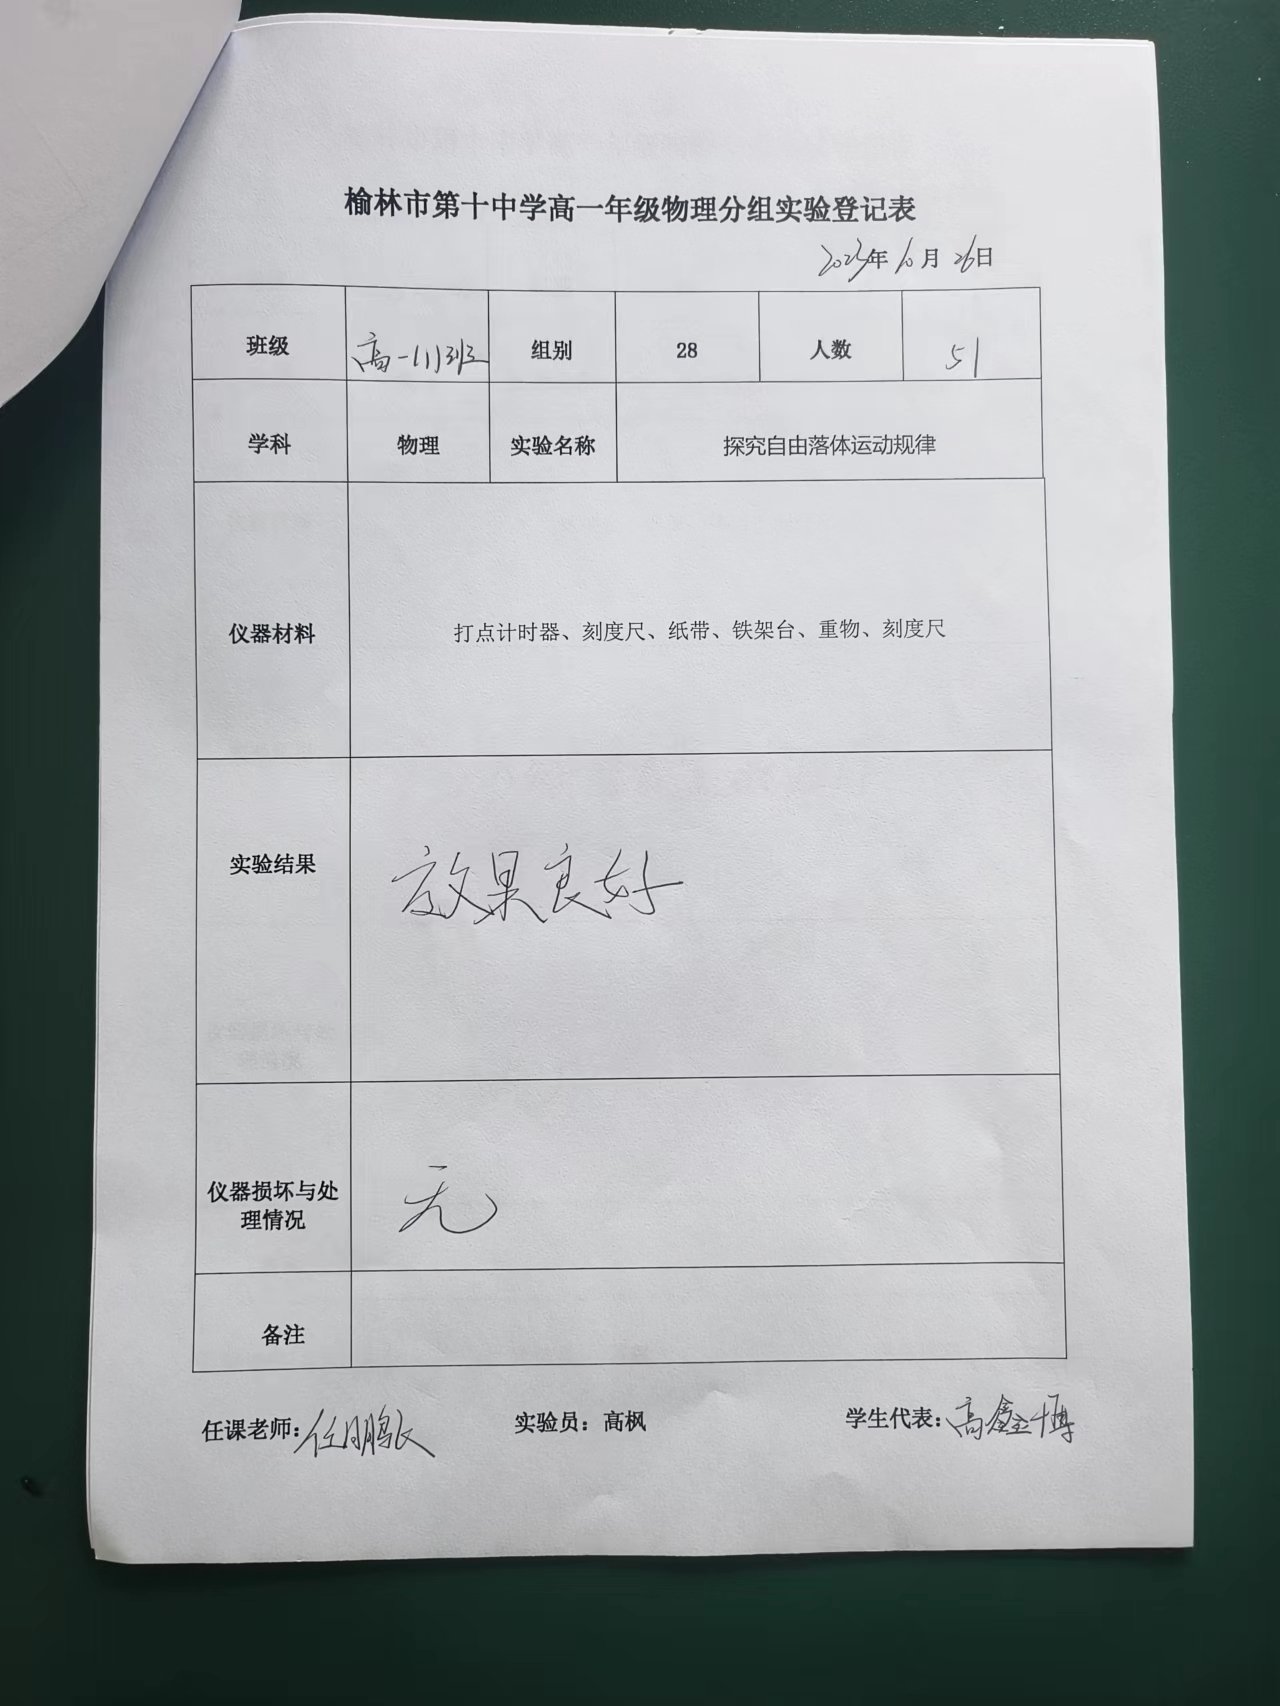 榆林市第十中学高一年级物理分组实验登记表
2023年10月26日
班级 高一(1)班 组别 28 人数 51
学科 物理 实验名称 探究自由落体运动规律
仪器材料 打点计时器、刻度尺、纸带、铁架台、重物、刻度尺
实验结果 效果良好
仪器损坏与处
理情况 无
备注
任课老师：任鹏飞 实验员：高枫 学生代表：高鑫博